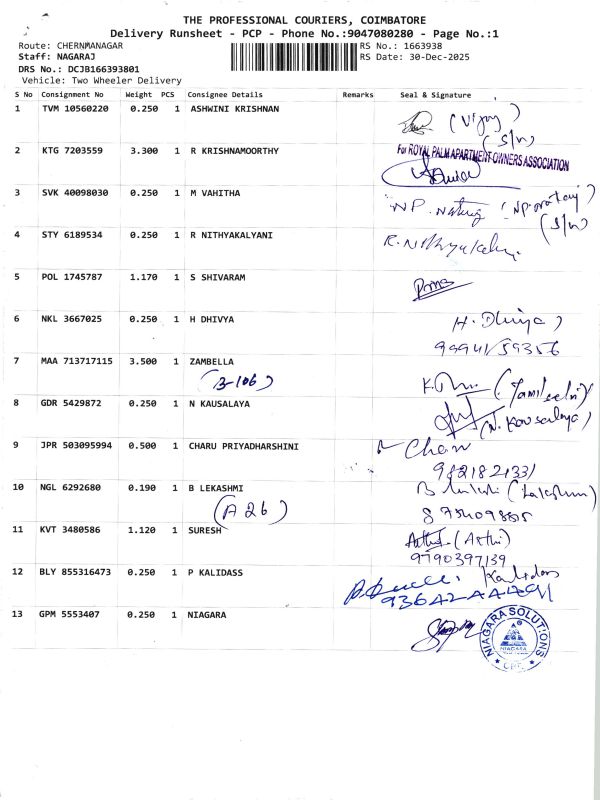 THE PROFESSIONAL COURIERS, COIMBATORE
Delivery Runsheet - PCP - Phone No.:9047080280 - Page No.:1
Route: CHERNMANAGAR
RS No.: 1663938
Staff: NAGARAJ
RS Date: 30-Dec-2025
DRS No.: DCJB166393801
Vehicle: Two Wheeler Delivery
S No Consignment No Weight PCS Consignee Details Remarks Seal & Signature
1 TVM 10560220 0.250 1 ASHWINI KRISHNAN
(Vijay)
(S/w)
2 KTG 7203559 3.300 1 R KRISHNAMOORTHY
For ROYAL PALM APARTMENT OWNERS ASSOCIATION
3 SVK 40098030 0.250 1 M VAHITHA
NP.
(S/w)
4 STY 6189534 0.250 1 R NITHYAKALYANI
R. Nithyakalyani
5 POL 1745787 1.170 1 S SHIVARAM
6 NKL 3667025 0.250 1 H DHIVYA
H. Dhivya)
99941/59356
7 MAA 713717115 3.500 1 ZAMBELLA
(B-106)
(Tamilselvi)
8 GDR 5429872 0.250 1 N KAUSALAYA
(N. Kousalaya)
9 JPR 503095994 0.500 1 CHARU PRIYADHARSHINI
Charu
10 NGL 6292680 0.190 1 B LEKASHMI
(A 26)
11 KVT 3480586 1.120 1 SURESH
(Arthi)
9790397139
12 BLY 855316473 0.250 1 P KALIDASS
Kalidass
13 GPM 5553407 0.250 1 NIAGARA
NIAGARA SOLUTIONS
NIAGARA